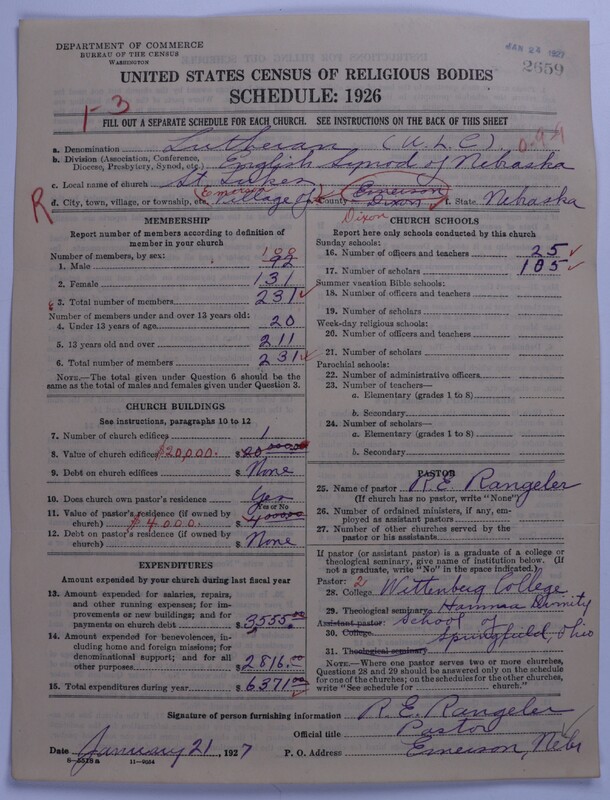 DEPARTMENT OF COMMERCE
BUREAU OF THE CENSUS
WASHINGTON
JAN 24 1927
2659
UNITED STATES CENSUS OF RELIGIOUS BODIES
SCHEDULE: 1926
1-3
FILL OUT A SEPARATE SCHEDULE FOR EACH CHURCH. SEE INSTRUCTIONS ON THE BACK OF THIS SHEET
a. Denomination Lutheran (U.L.C.)
b. Division (Association, Conference, Diocese, Presbytery, Synod, etc.) English Synod of Nebraska
c. Local name of church St. Lukes
R
d. City, town, village, or township, etc. Village of Emerson e. County Emerson Dixon f. State Nebraska
Dixon
MEMBERSHIP
Report number of members according to definition of member in your church
Number of members, by sex: 100
1. Male 92
2. Female 131
3. Total number of members 231
Number of members under and over 13 years old:
4. Under 13 years of age 20
5. 13 years old and over 211
6. Total number of members 231
NOTE.—The total given under Question 6 should be the same as the total of males and females given under Question 3.
CHURCH BUILDINGS
See instructions, paragraphs 10 to 12
7. Number of church edifices 1
8. Value of church edifices $20,000. $
9. Debt on church edifices $ None
10. Does church own pastor's residence Yes
Yes or No
11. Value of pastor's residence (if owned by church) $4000. $
12. Debt on pastor's residence (if owned by church) $ None
EXPENDITURES
Amount expended by your church during last fiscal year
13. Amount expended for salaries, repairs, and other running expenses; for improvements or new buildings; and for payments on church debt $ 3555.00
14. Amount expended for benevolences, including home and foreign missions; for denominational support; and for all other purposes $ 2816.00
15. Total expenditures during year $ 6371.00
CHURCH SCHOOLS
Report here only schools conducted by this church
Sunday schools:
16. Number of officers and teachers 25
17. Number of scholars 185
Summer vacation Bible schools:
18. Number of officers and teachers
19. Number of scholars
Week-day religious schools:
20. Number of officers and teachers
21. Number of scholars
Parochial schools:
22. Number of administrative officers
23. Number of teachers—
a. Elementary (grades 1 to 8)
b. Secondary
24. Number of scholars—
a. Elementary (grades 1 to 8)
b. Secondary
PASTOR
25. Name of pastor R. E. Rangeler
(If church has no pastor, write "None")
26. Number of ordained ministers, if any, employed as assistant pastors
27. Number of other churches served by the pastor or his assistants
If pastor (or assistant pastor) is a graduate of a college or theological seminary, give name of institution below. (If not a graduate, write "No" in the space indicated.)
Pastor: 2
28. College Wittenberg College
29. Theological seminary Hamma Divinity
Assistant pastor: School of
30. College Springfield, Ohio
31. Theological seminary
NOTE.—Where one pastor serves two or more churches, Questions 28 and 29 should be answered only on the schedule for one of the churches; on the schedules for the other churches, write "See schedule for church."
Signature of person furnishing information R. E. Rangeler
Official title Pastor
Date January 21, 1927 P. O. Address Emerson, Nebr
8-5518a 11-9554